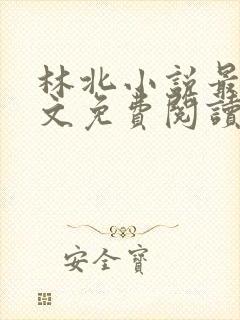 林北小說最
文免費閱讀
安全寶